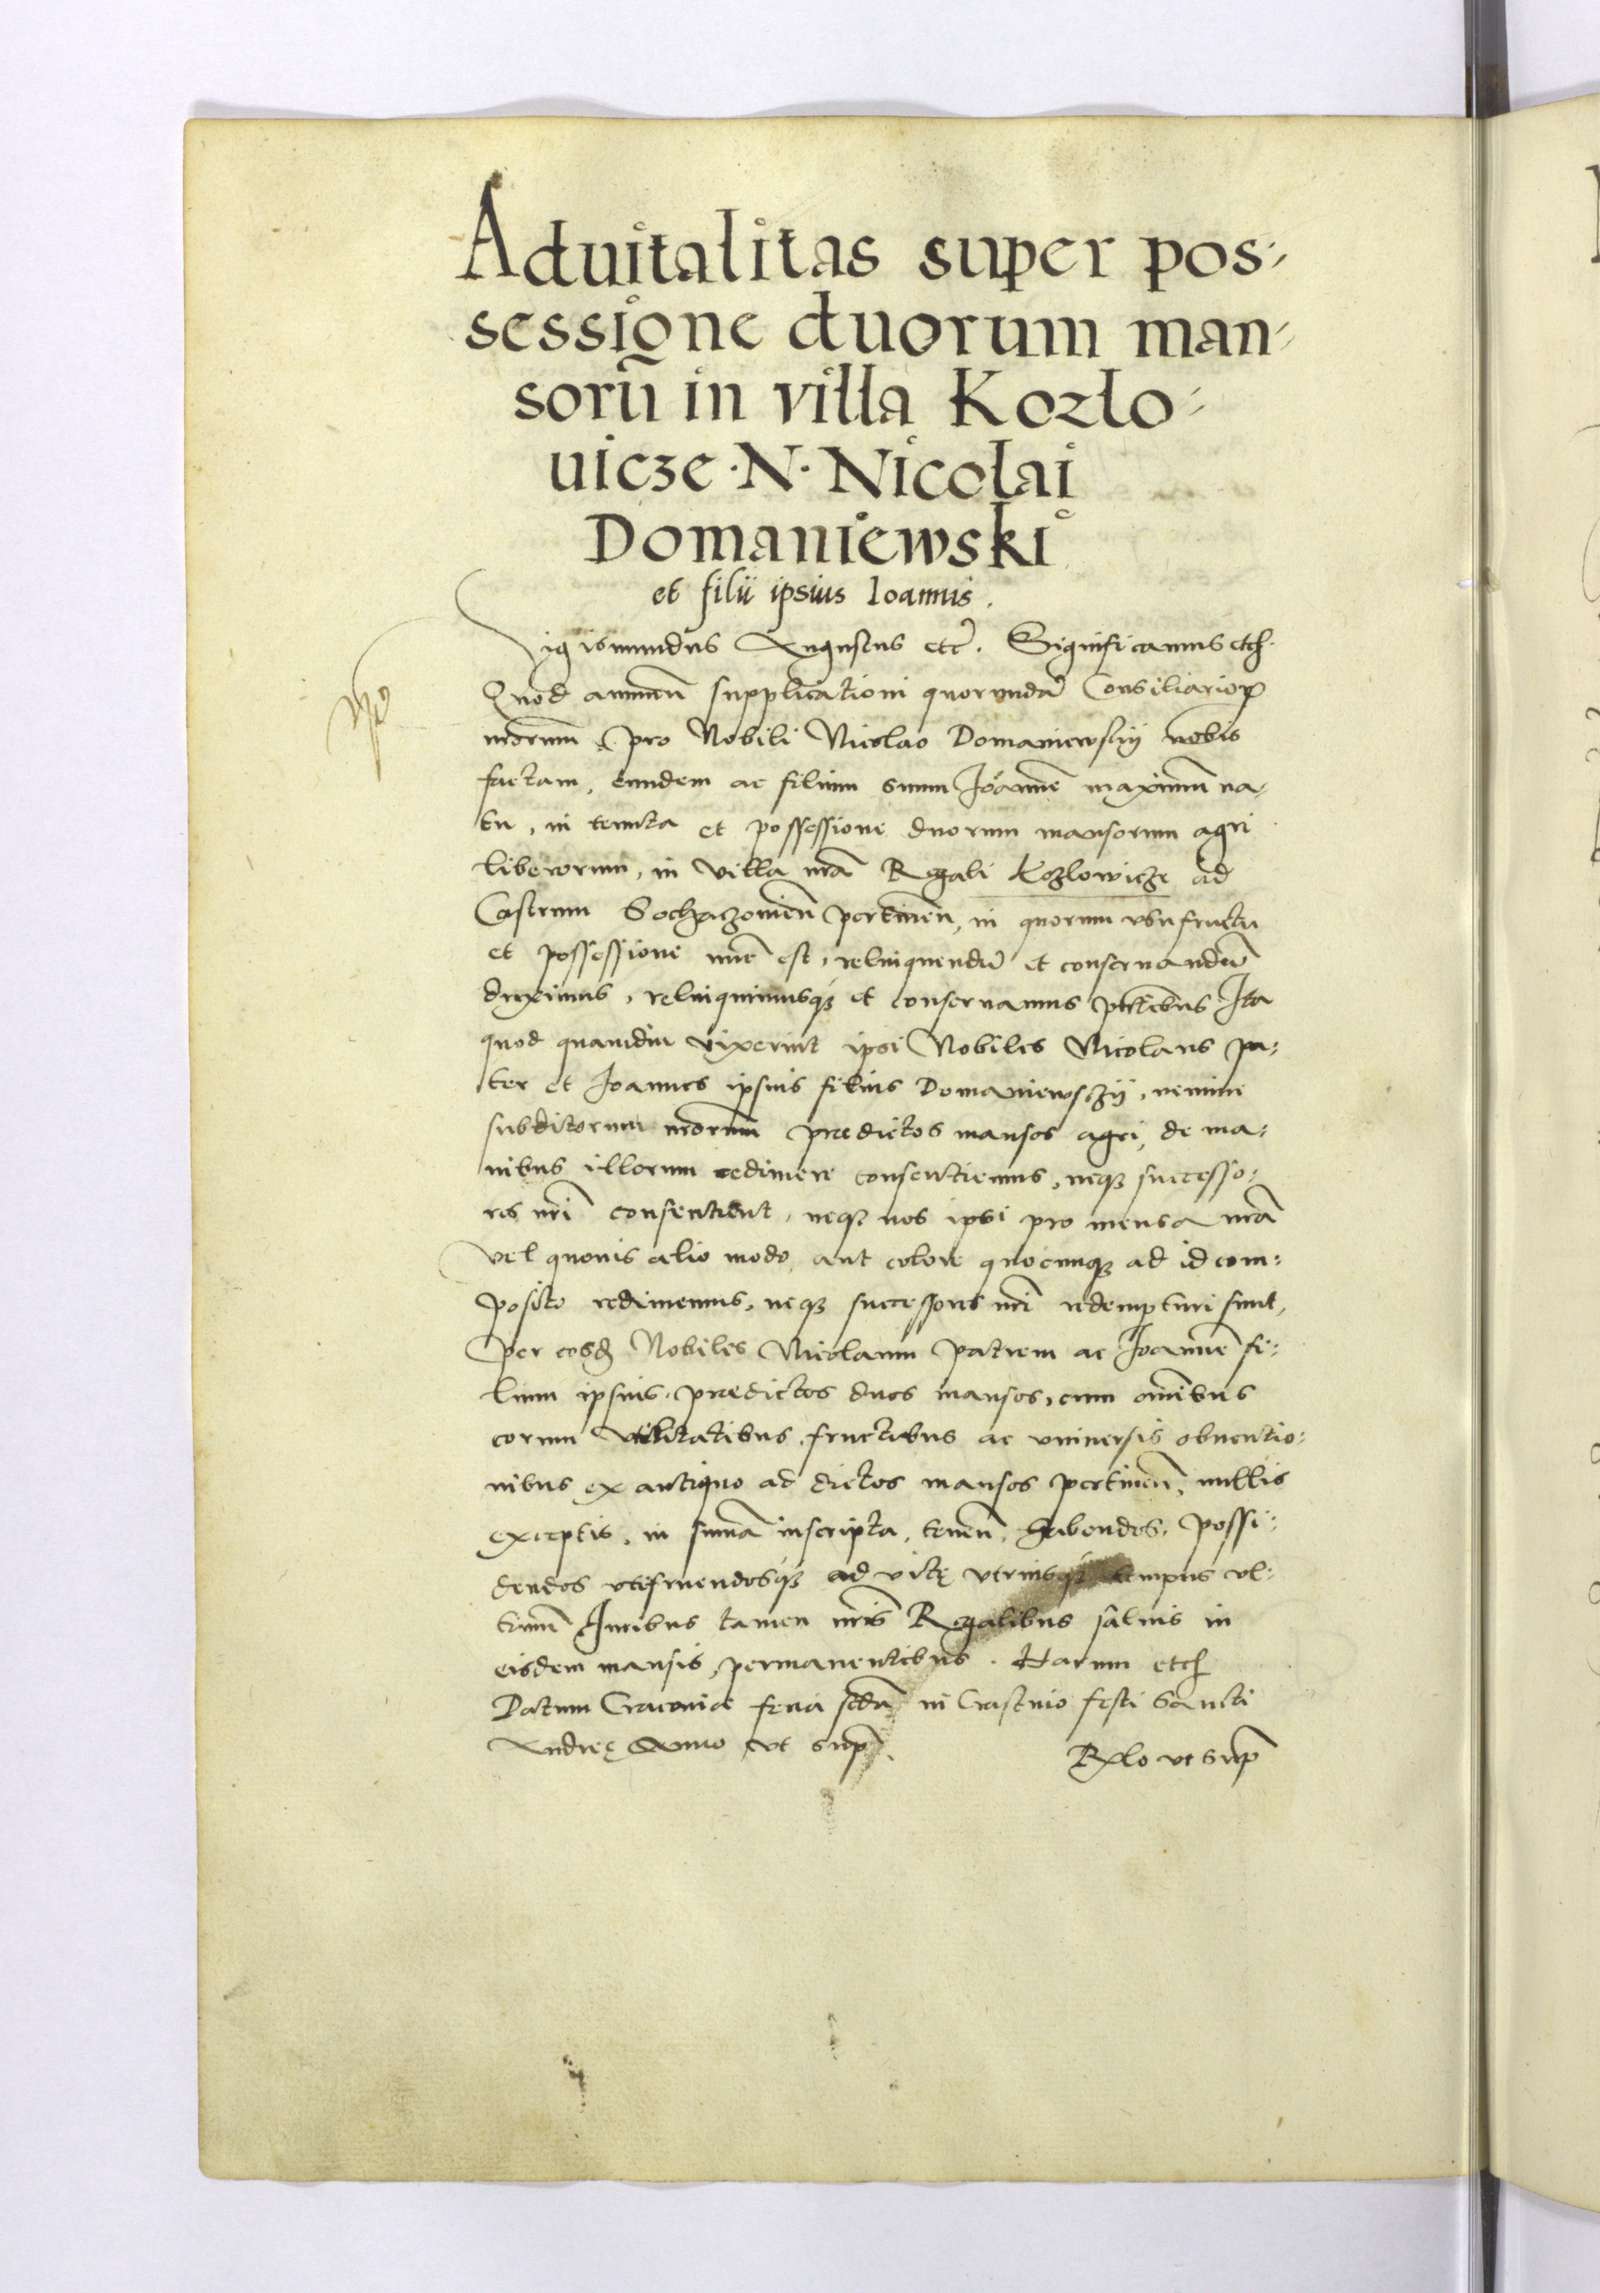 Aduitalitas super pos-
sessione duorum man-
sorũ in villa Kozlo-
uicze ·N· Nicolai
Domaniewski
et filii ipsius Ioannis.
Sigismundus Augustus etc̃. Significamus etc̃.
Quod annuen̄ supplicationi quorundã Consiliarioꝝ
nrorum̄, pro Nobili Nicolao Domaniewskij nobis
factam, eundem ac filium suum Joannē maximum̄ na-
tu, in tenuta et possessione duorum mansorum agri
liberorum, in villa nrã Regali Kozlowicze ad
Castrum Sochaczouien̄ pertinen̄, in quorum vsufructu
et possessione nunc est, relinquendū et conseruandū
duximus, relinquimusqꝫ et conseruamus pñtibus Ita
quod quamdiu vixerint ipsi Nobiles Nicolaus pa-
ter et Joannes ipsius filius Domaniewsczij, nemini
subditorum nrorum̄ predictos mansos agri, de ma-
nibus illorum redimere consentiemus, neqꝫ successo-
res nrĩ consentient, neqꝫ nos ipsi pro mensa nrã
vel quouis alio modo, aut colore quocunqꝫ ad id com-
posito redimemus, neqꝫ successores nrĩ redempturi sunt,
Per eosd̄ Nobiles Nicolaum patrem ac Joannē fi-
lium ipsius, predictos duos mansos, cum omĩbus
eorum vtilitatibus, fructibus ac vniuersis obuentio-
nibus ex antiquo ad dictos mansos pertinen̄, nullis
exceptis, in summã inscripta, tenen̄, habendos, possi-
dendos vtifruendosqꝫ ad vitę vtriusqꝫ tempus vl-
timū Juribus tamen nrĩs Regalibus saluis in
eisdem mansis, permanentibus. Harum etc̃
Datum Cracouiæ feria scdã in Crastino festi Sancti
Andreę Anno vt sup̃.
Rlo vt sup̃